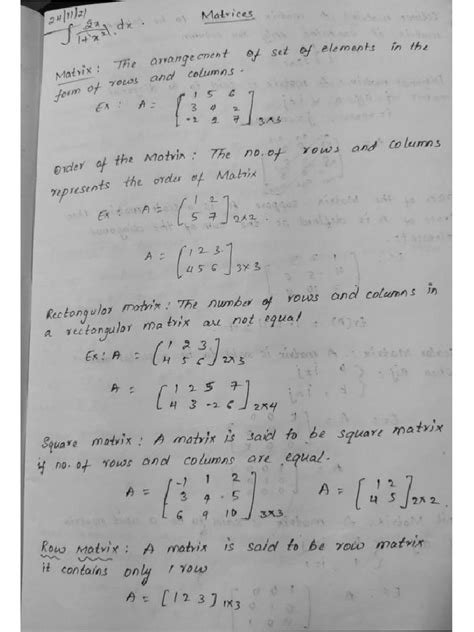 24/11/21
Matrices
∫ 2x/1+x² . dx .
Matrix : The arrangement of set of elements in the
form of rows and columns .
Ex : A = [1 5 6
3 4 2
-2 2 7] 3x3
Order of the Matrix : The no. of rows and columns
represents the order of Matrix
Ex : A = [1 2
5 7] 2x2 .
A = [1 2 3
4 5 6] 3x3
Rectangular matrix : The number of rows and columns in
a rectangular matrix are not equal
Ex : A = [1 2 3
4 5 6] 2x3
A = [1 2 5 7
4 3 -2 6] 2x4
Square matrix : A matrix is said to be square matrix
if no. of rows and columns are equal .
A = [-1 1 2
3 4 5
6 9 10] 3x3
A = [1 2
4 5] 2x2 .
Row Matrix : A matrix is said to be row matrix
it contains only 1 row
A = [1 2 3] 1x3